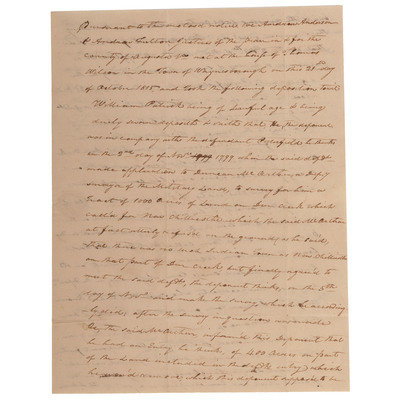 Pursuant to the enclosed notice We Andrew Anderson
& Andrew Fulton Justices of the Peace in & for the
county of Augusta Va met at the house of Thomas
Wilson in the Town of Waynesborough on this 31st day
of October 1815 and took the following deposition to wit
William Patrick being of lawful age & being
duly sworn deposeth & saith that he the deponent
was in company with the defendant he thinks
on the 2nd day of Novr 1799 when the said deft
make application to Duncan McArthur a Depy
surveyor of the Military Lands to survey for him a
tract of 1000 Acres of Land on Deer Creek which
calls for New Chillicothe which the said McArthur
at first on the ground, as he said,
that there was no such Indian Town as New Chillicothe
on that part of Deer Creek but finally agreed to
meet the said deft, the deponent thinks, on the 5th
day of Novr and make the survey, which he according-
ly did, after the survey in question was made
the said McArthur informed this deponent that
he had an Entry he thinks of 400 Acres on part
of the Land included in the deft's entry which
he would remove which this deponent supposes to be